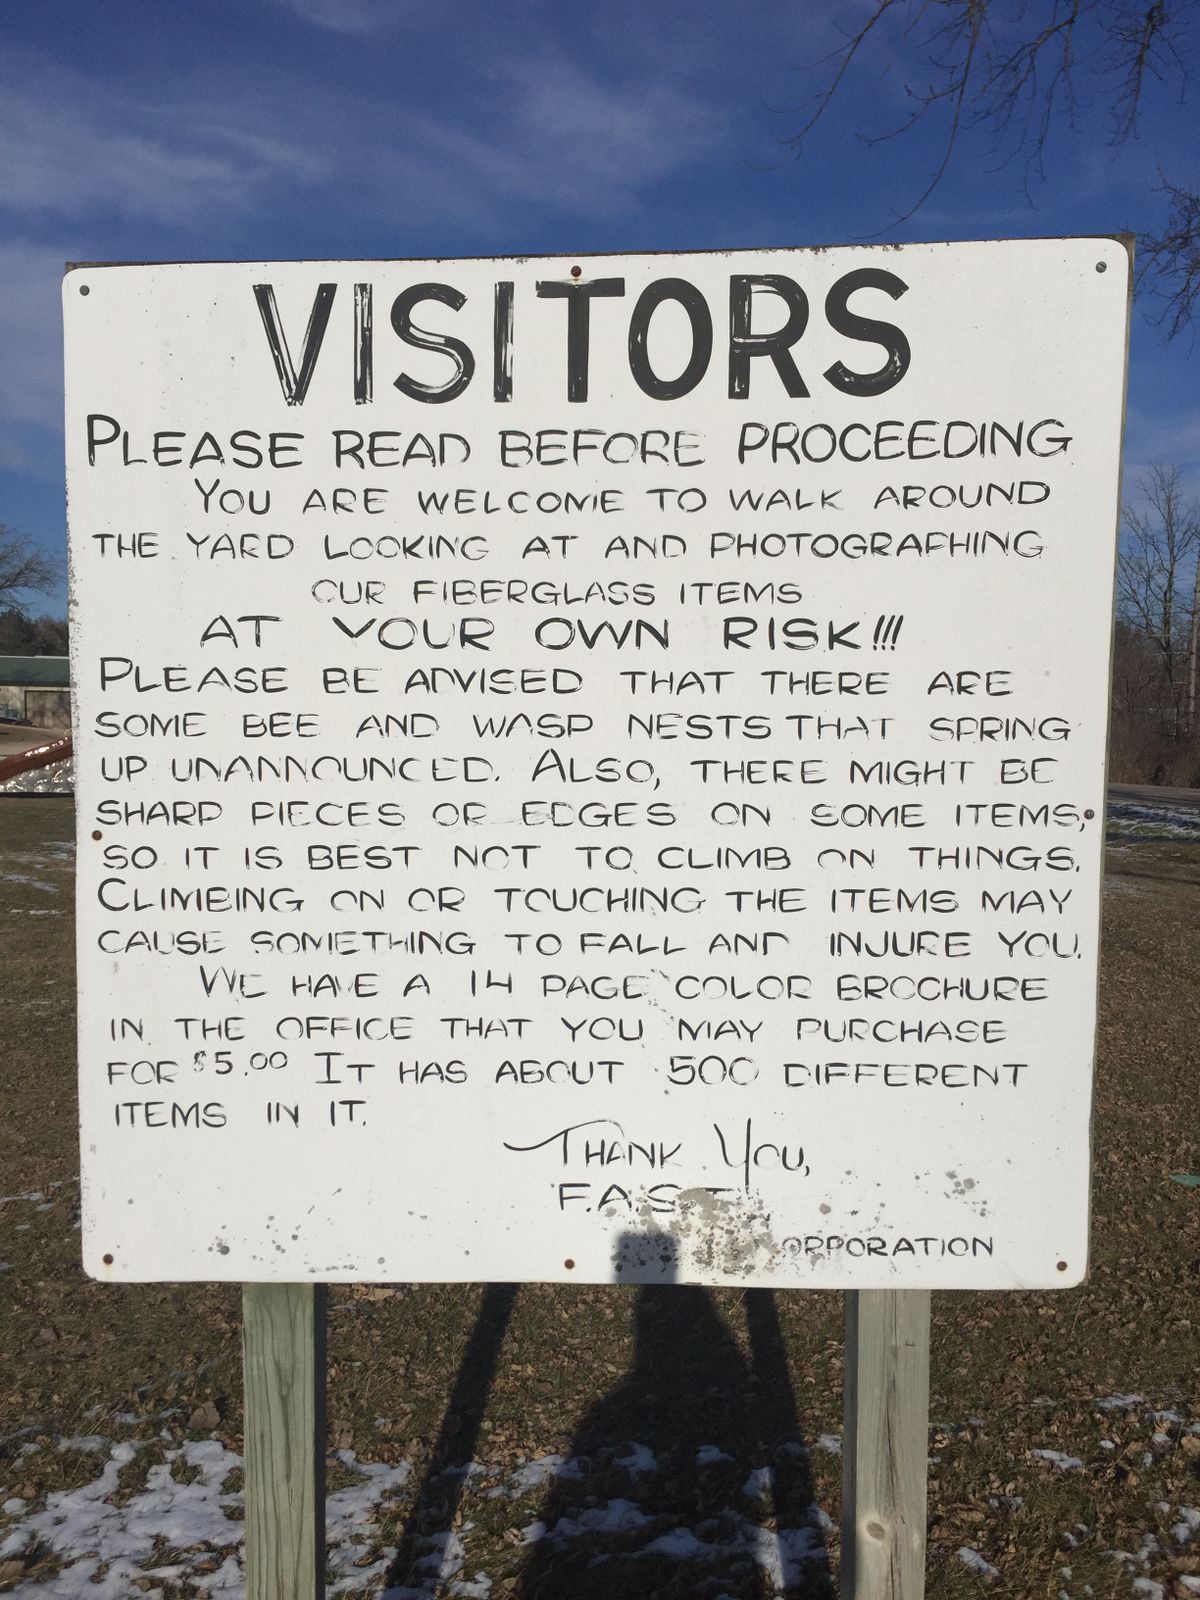 VISITORS
PLEASE READ BEFORE PROCEEDING
YOU ARE WELCOME TO WALK AROUND
THE YARD LOOKING AT AND PHOTOGRAPHING
OUR FIBERGLASS ITEMS
AT YOUR OWN RISK!!!
PLEASE BE ADVISED THAT THERE ARE
SOME BEE AND WASP NESTS THAT SPRING
UP UNANNOUNCED. ALSO, THERE MIGHT BE
SHARP PIECES OR EDGES ON SOME ITEMS,
SO IT IS BEST NOT TO CLIMB ON THINGS.
CLIMBING ON OR TOUCHING THE ITEMS MAY
CAUSE SOMETHING TO FALL AND INJURE YOU.
WE HAVE A 14 PAGE COLOR BROCHURE
IN THE OFFICE THAT YOU MAY PURCHASE
FOR $5.00 IT HAS ABOUT 500 DIFFERENT
ITEMS IN IT.
THANK YOU,
F.A.S.T.
ORPORATION